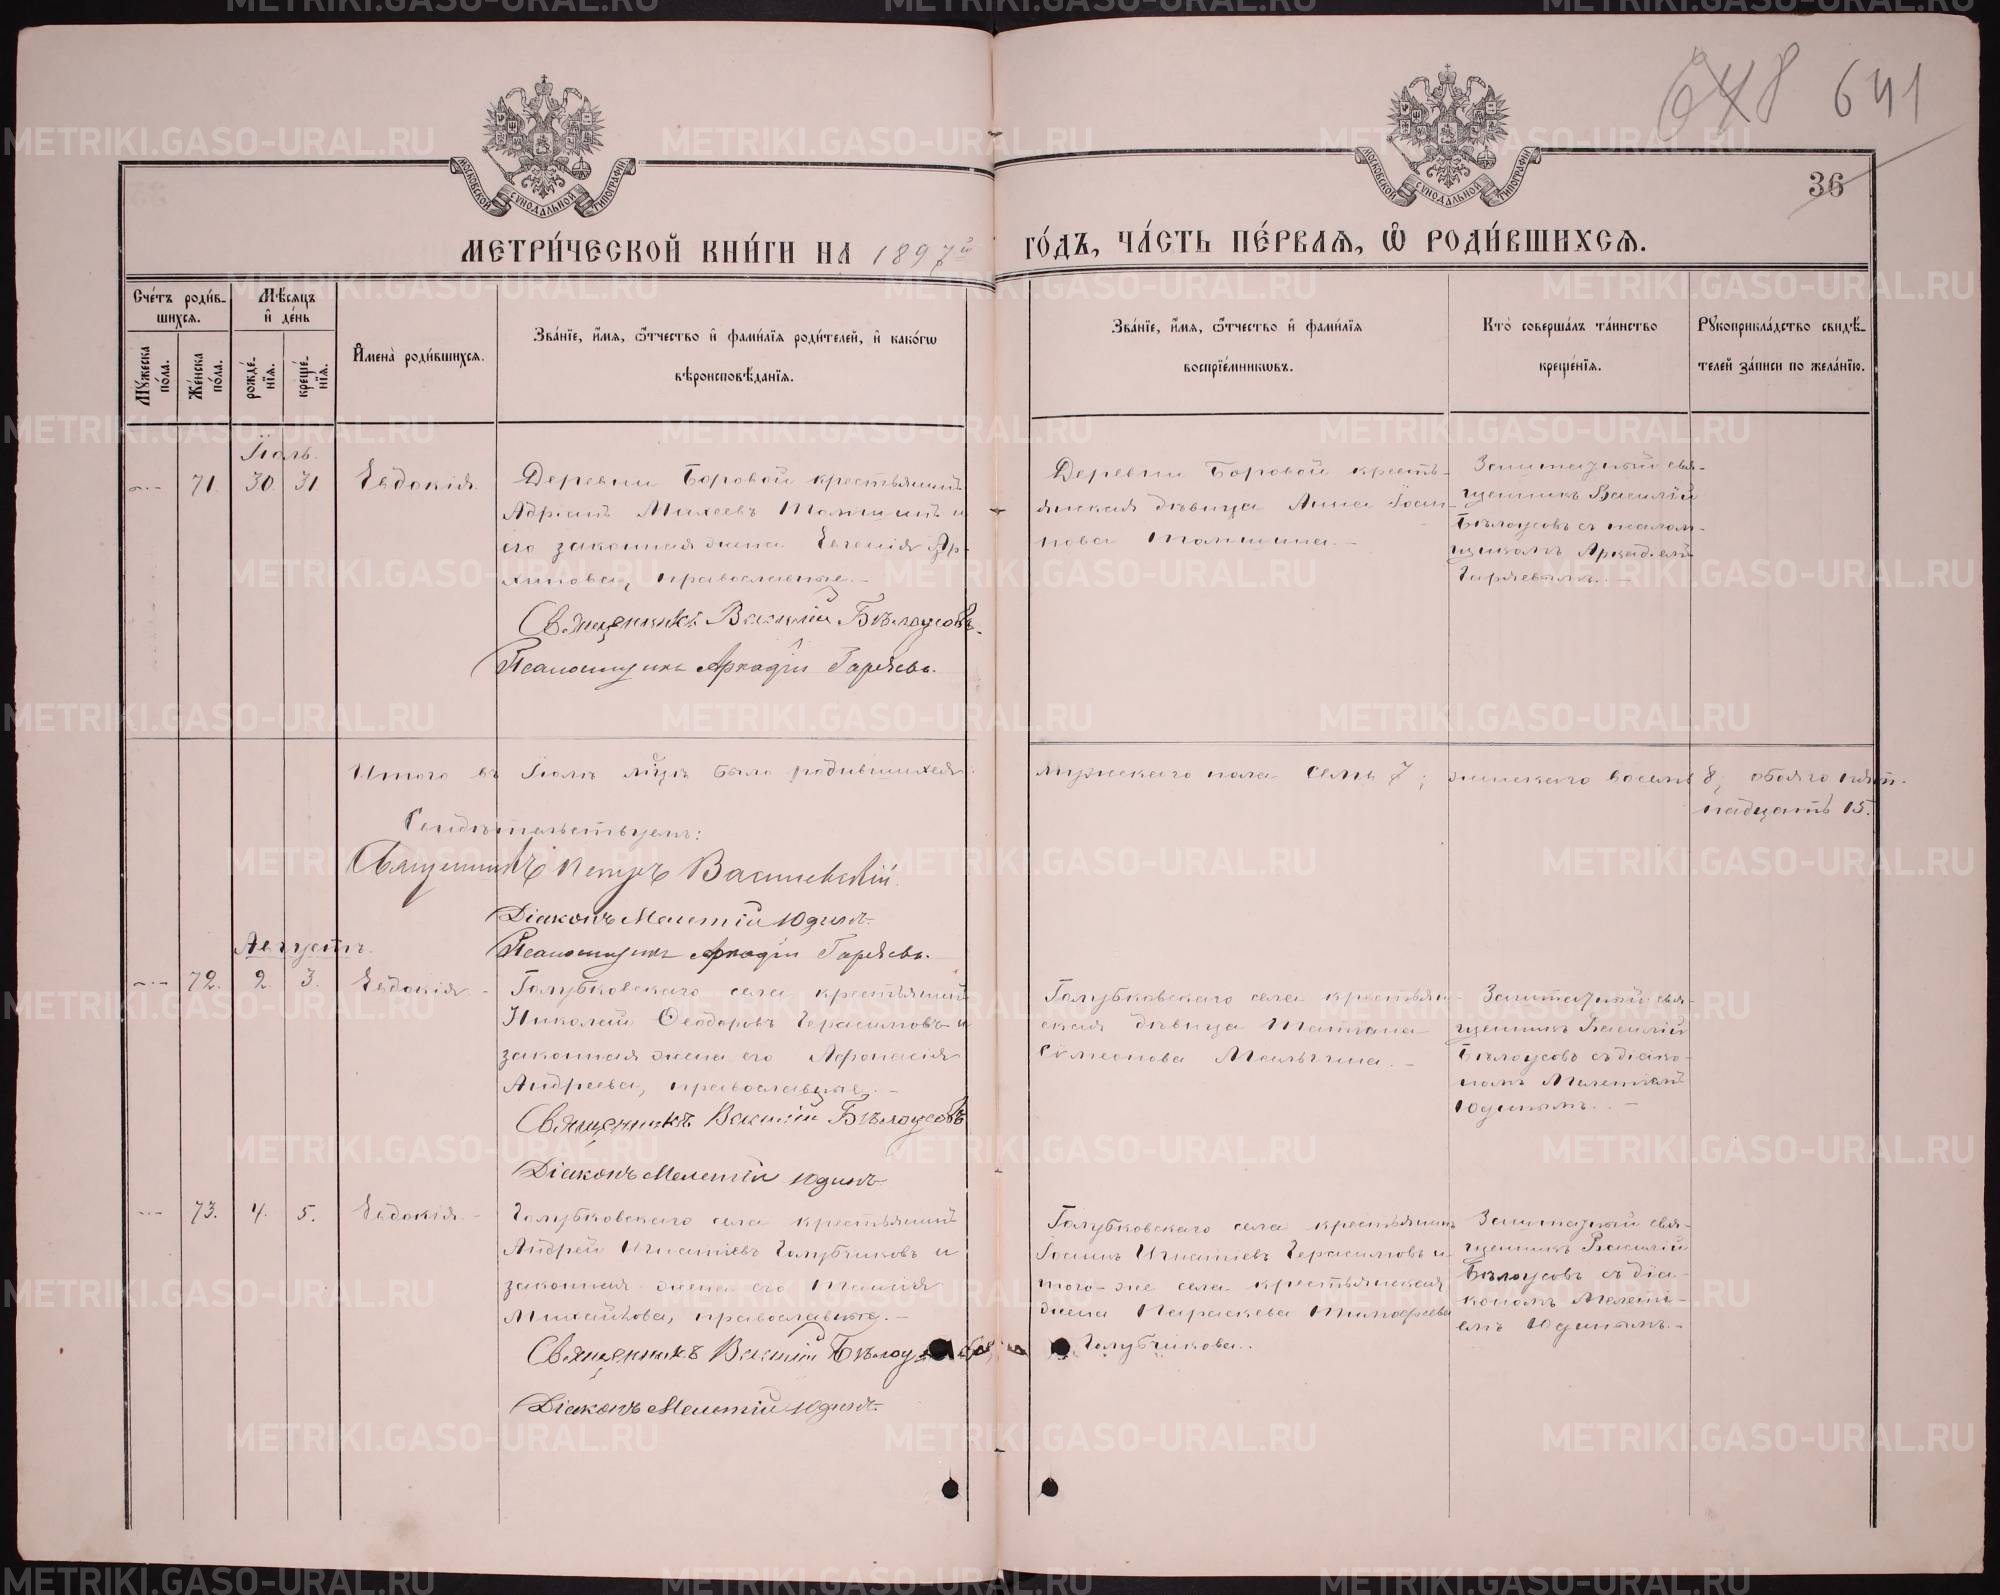 648 641
36
МОСКОВСКОЙ СУНОДАЛЬНОЙ ТИПОГРАФИИ
МОСКОВСКОЙ СУНОДАЛЬНОЙ ТИПОГРАФИИ
МЕТРИ́ЧЕСКОЙ КНИ́ГИ НА 1897й ГО́ДЪ, ЧА́СТЬ ПЕ́РВАѦ, Ѽ РОДИ́ВШИХСѦ.
Сче́тъ роди́в-
шихсѧ.
Мꙋ́жеска по́ла.
Же́нска по́ла.
Мѣ́сѧцъ и҆ де́нь
рожде́-нїѧ.
креще́-нїѧ.
И҆мена̀ роди́вшихсѧ.
Зва́нїе, и҆́мѧ, ѻ҆́тчество и҆ фами́лїѧ роди́телей, и҆ како́гѡ
вѣроисповѣ́данїѧ.
Зва́нїе, и҆́мѧ, ѻ҆́тчество и҆ фами́лїѧ
воспрїе́мникѡвъ.
Кто̀ соверша́лъ та́инство
креще́нїѧ.
Рꙋкоприкла́дство свидѣ́-
телей за́писи по жела́нїю.
Іюль.
71. 30. 31. Евдокія
Деревни Боровой крестьянинъ
Адріанъ Михеевъ Томшинъ и
его законная жена Евгенія Ар-
хипова, православные.-
Священникъ Василій Бѣлоусовъ.
Псаломщикъ Аркадій Гаряевъ.
Деревни Боровой кресть-
янская дѣвица Анна Іоан-
нова Томшина.-
Заштатный свя-
щенникъ Василій
Бѣлоусовъ съ псалом-
щикомъ Аркадіемъ
Гаряевымъ.-
Итого въ Іюлѣ мѣсяцѣ было родившихся мужскаго пола семь 7; женскаго восемь 8; обоего пят-
надцать 15.
Свидѣтельствуемъ:
Священникъ Петръ Василевскій.
Діаконъ Мелетій Юдинъ.
Псаломщикъ Аркадій Гаряевъ.
Августъ.
72. 2. 3. Евдокія -
Голубковскаго села крестьянинъ
Николай Ѳеодоровъ Герасимовъ и
законная жена его Афонасія
Андреева, православные.-
Священникъ Василій Бѣлоусовъ
Діаконъ Мелетій Юдинъ
Голубковскаго села крестьян-
ская дѣвица Татіана
Сѵмеонова Мальгина.-
Заштатный свя-
щенникъ Василій
Бѣлоусовъ съ діако-
номъ Мелетіемъ
Юдинымъ.-
73. 4. 5. Евдокія. -
Голубковскаго села крестьянинъ
Андрей Игнатіевъ Голубчиковъ и
законная жена его Таисія
Михайлова, православные.-
Священникъ Василій Бѣлоусовъ
Діаконъ Мелетій Юдинъ.
Голубковскаго села крестьянинъ
Іоаннъ Игнатіевъ Герасимовъ и
того-же села крестьянская
жена Параскева Тимофеева
Голубчикова..
Заштатный свя-
щенникъ Василій
Бѣлоусовъ съ діа-
кономъ Мелеті-
емъ Юдинымъ.-
METRIKI.GASO-URAL.RU